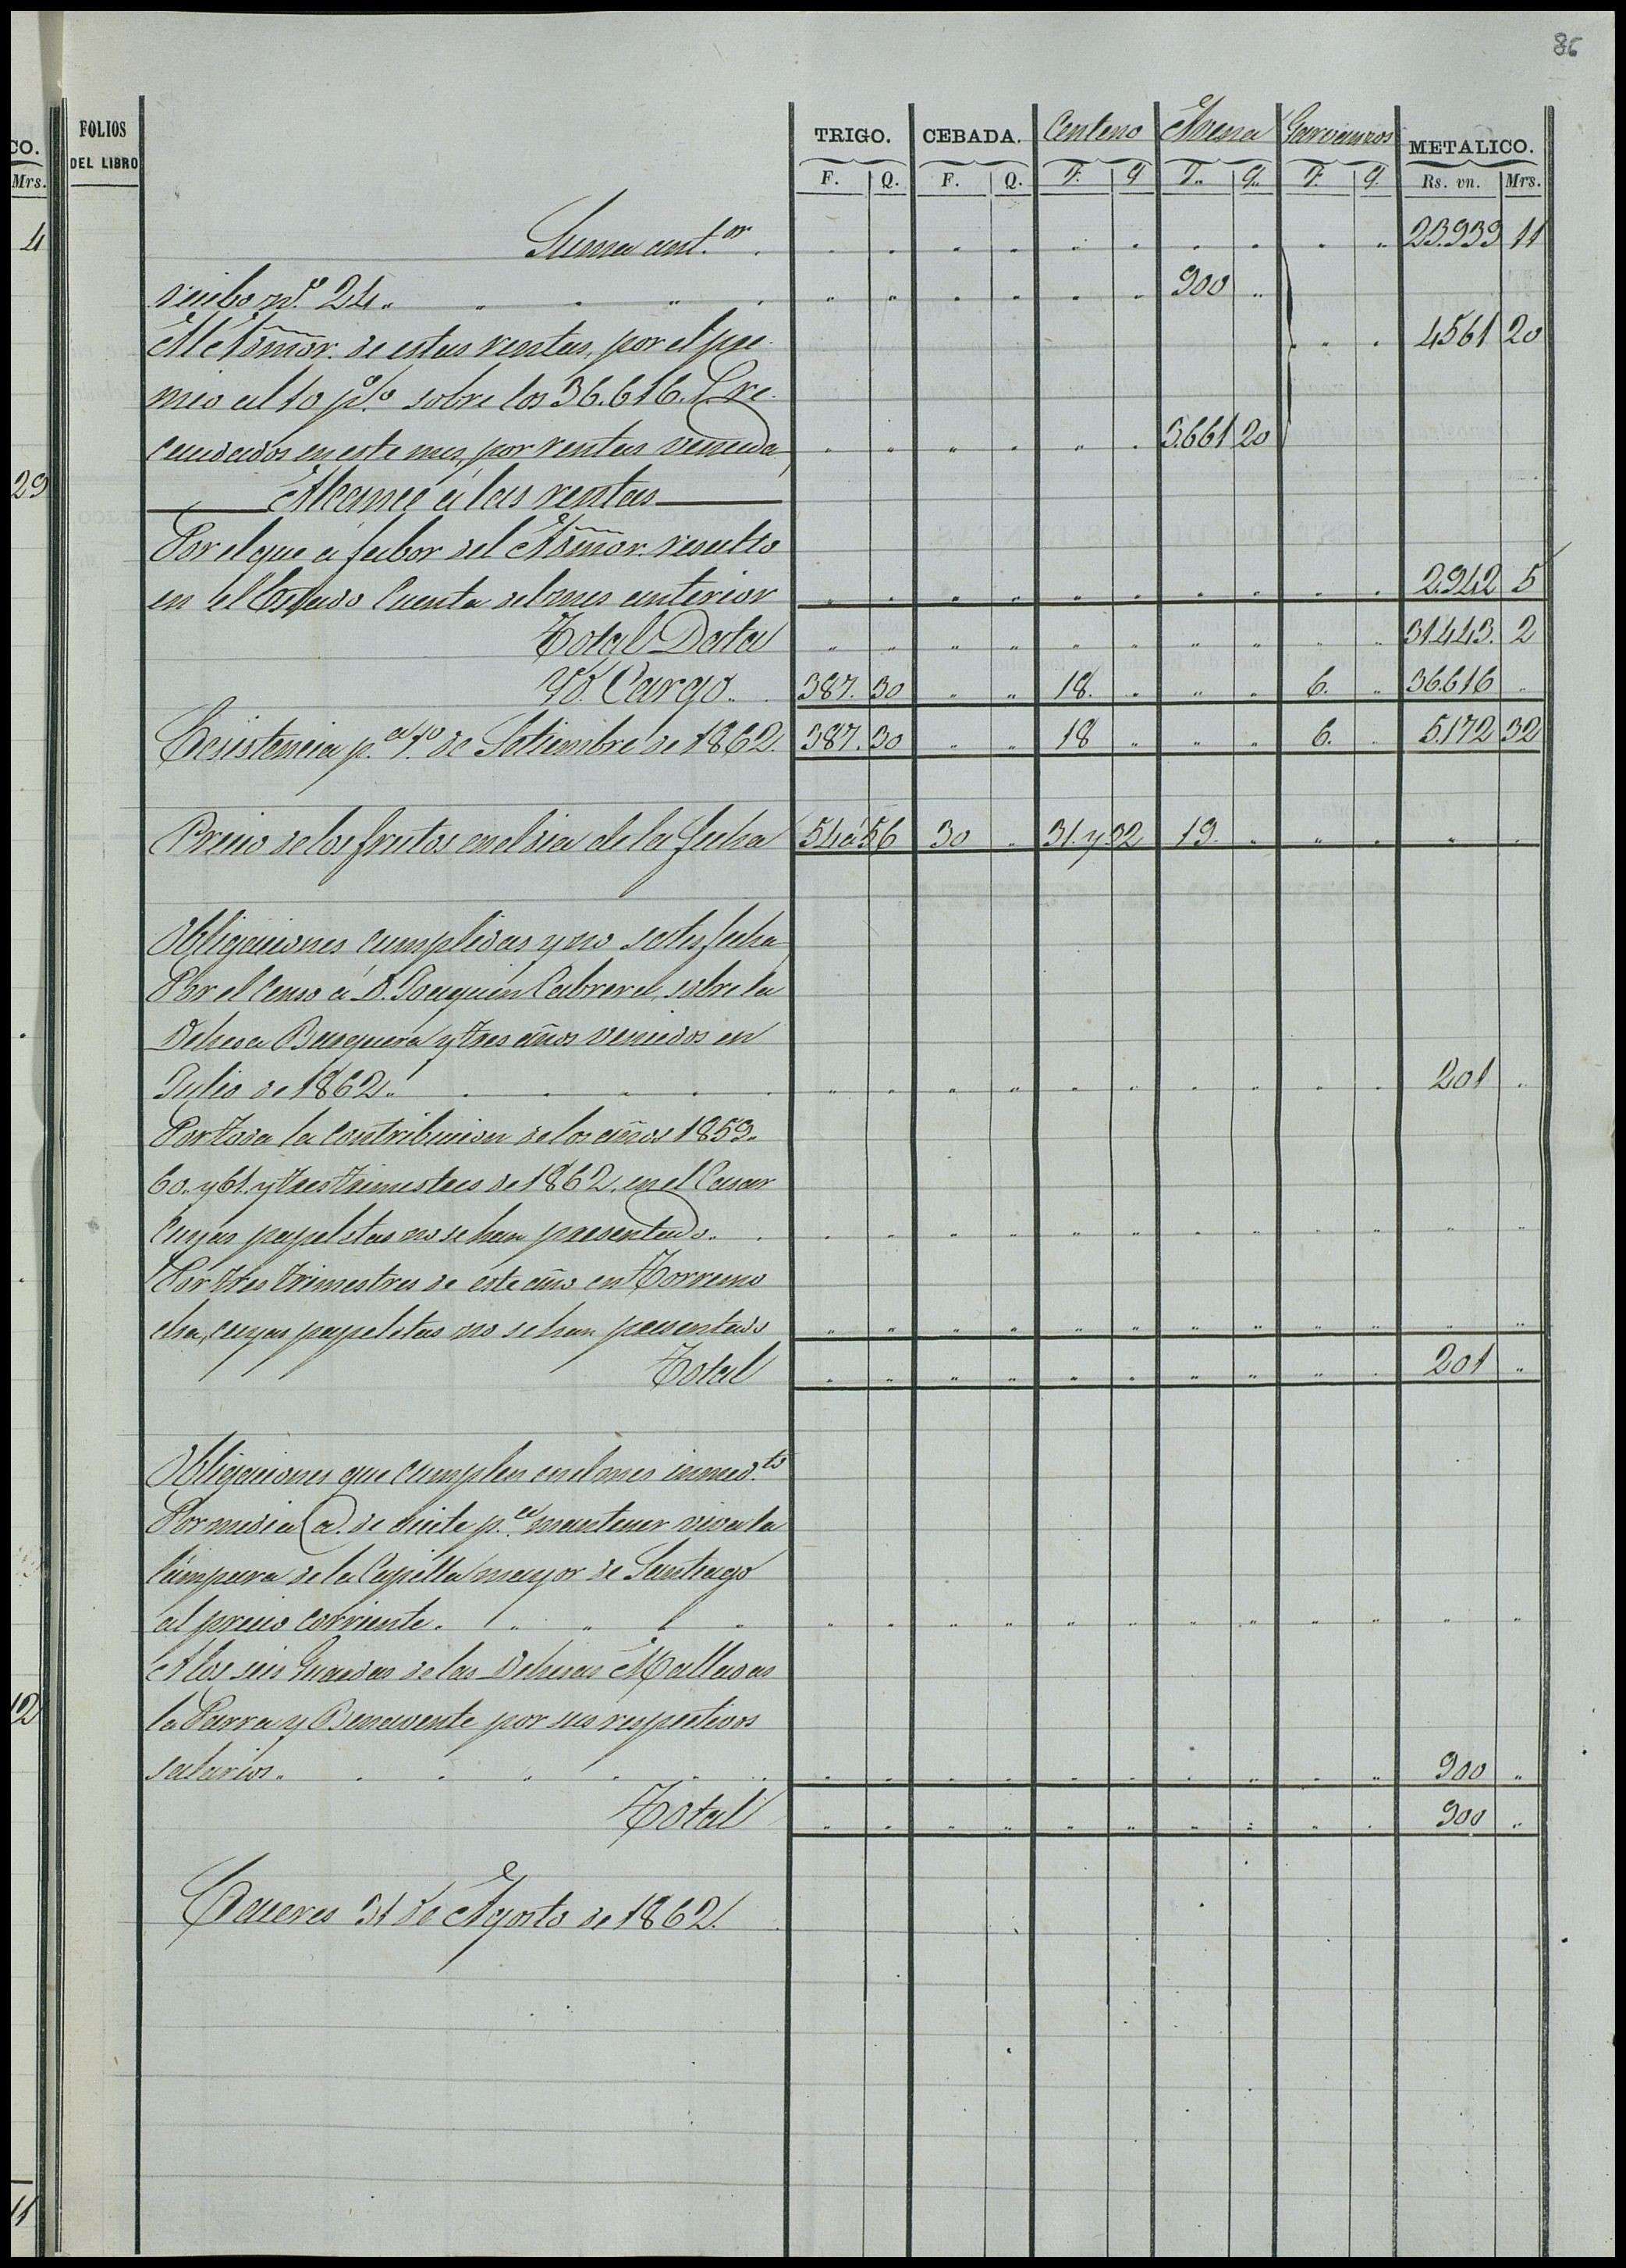 86
CO.
Mrs.
4
29
12
11
FOLIOS DEL LIBRO
TRIGO. CEBADA. Centeno Avena Garvanzos METALICO.
F. Q. F. Q. F. Q F.. Q.. F. Q. Rs. vn. Mrs.
Suma ant.or 23.939 11
recibo n.o 24 900
Al Admōr. de estas rentas, por el pre- 4561 20
mio al 10 p.o/o sobre los 36.616. r. re-
caudados en este mes, por rentas vencidas 3.661 20
Alcance á las rentas
Por el que á fabor del Admōr. resultó
en el Estado Cuenta del mes anterior 2.942 5
Total Data 31.443. 2
Yd. Cargo 387. 30 18. 6. 36.616
Ecsistencia p.a 1.o de Setiembre de 1862. 387. 30 18 6. 5.172 32
Precio de los frutos en el dia de la fecha 54 á 56 30 31. y 32 19.
Obligaciones cumplidas y no satisfechas
Por el Censo á D. Joaquin Cabrera, sobre la
Dehesa Baquera y tres años vencidos en
Julio de 1862. 201
Por toda la contribucion de los años 1859.
60. y 61. y tres trimestres de 1862, en el Casar
cuyas papeletas no se han presentado.
Por tres trimestres de este año en Torremo
cha, cuyas papeletas no se han presentado
Total 201
Obligaciones que cumplen en el mes inmed.to
Por media @. de aceite p.a mantener viva la
lámpara de la Capilla mayor de Santiago
al precio corriente.
A los seis Guardas de las Dehesas Malladas
la Parra y Benavente por sus respectivos
salarios. 900
Total 900
Caceres 31 de Agosto de 1862.